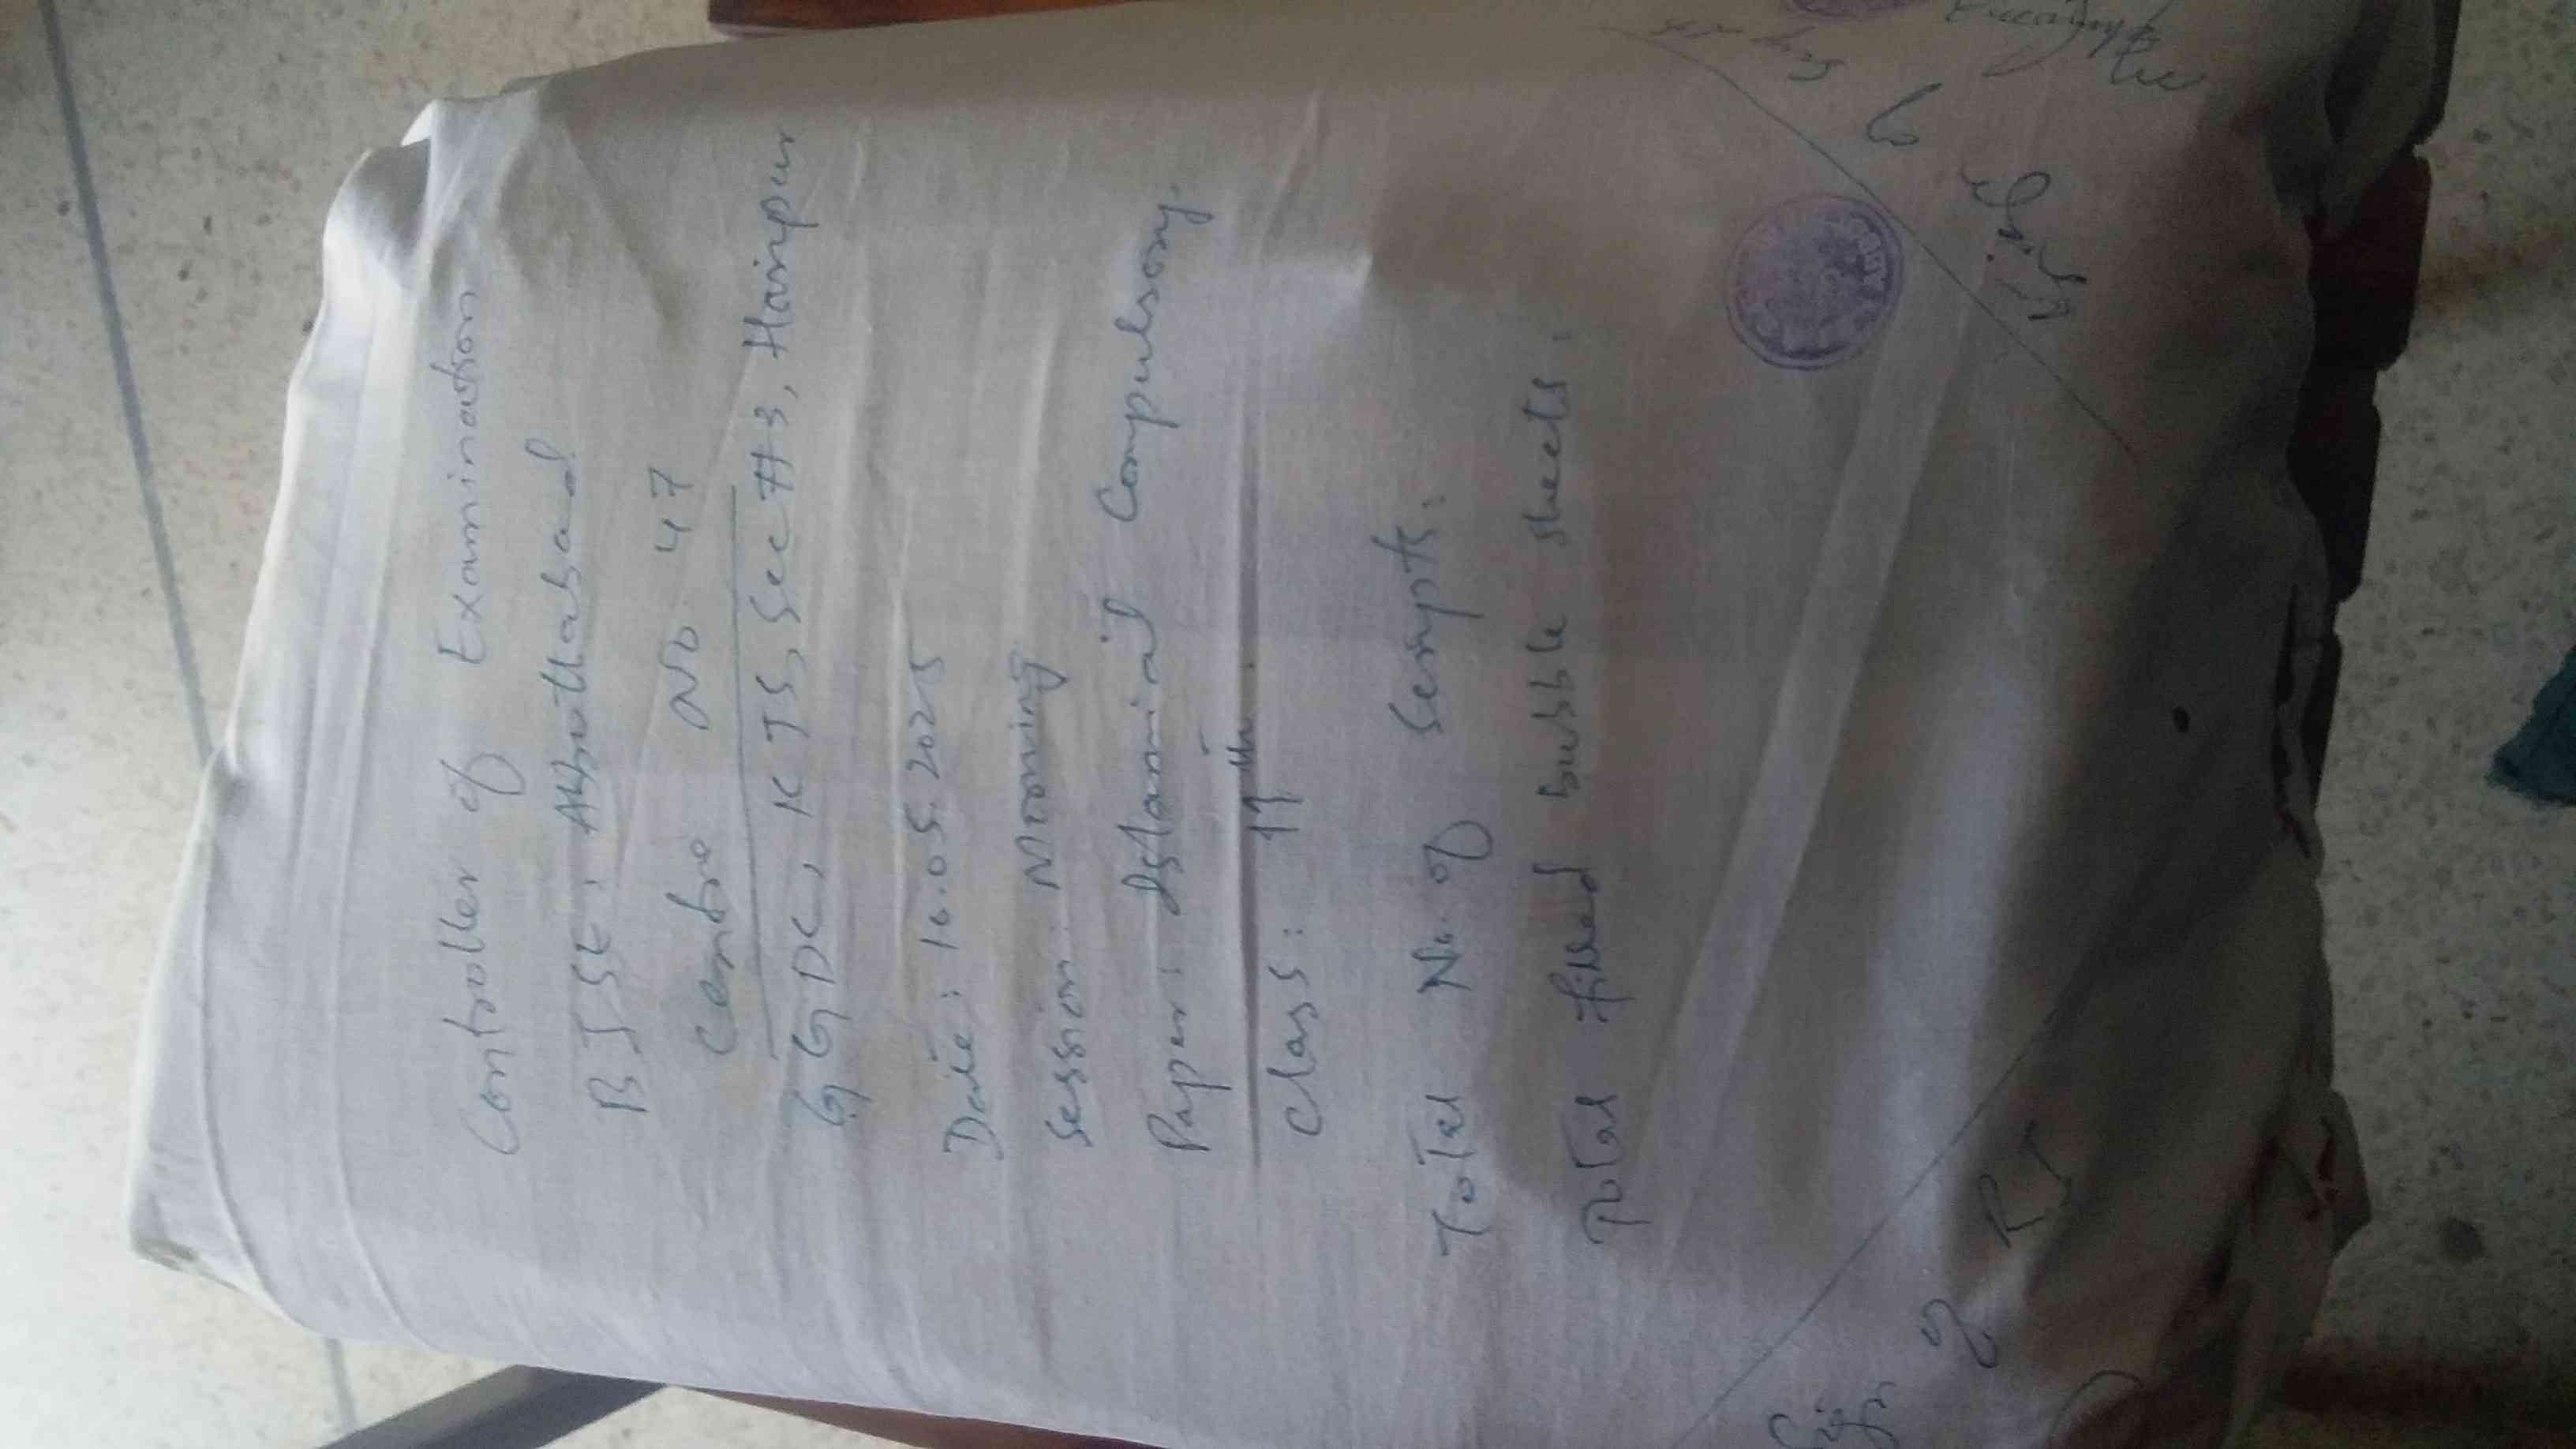 Controller of Examination
BISE, Abbottabad
Centre No 47
GGDC, KTS, Sec #3, Haripur
Date: 16.05.2025
Session: Morning
Paper: Islamiat Compulsory
Class: 11th
Total No. of Scripts:
Total filled bubble sheets:
Sign of RI